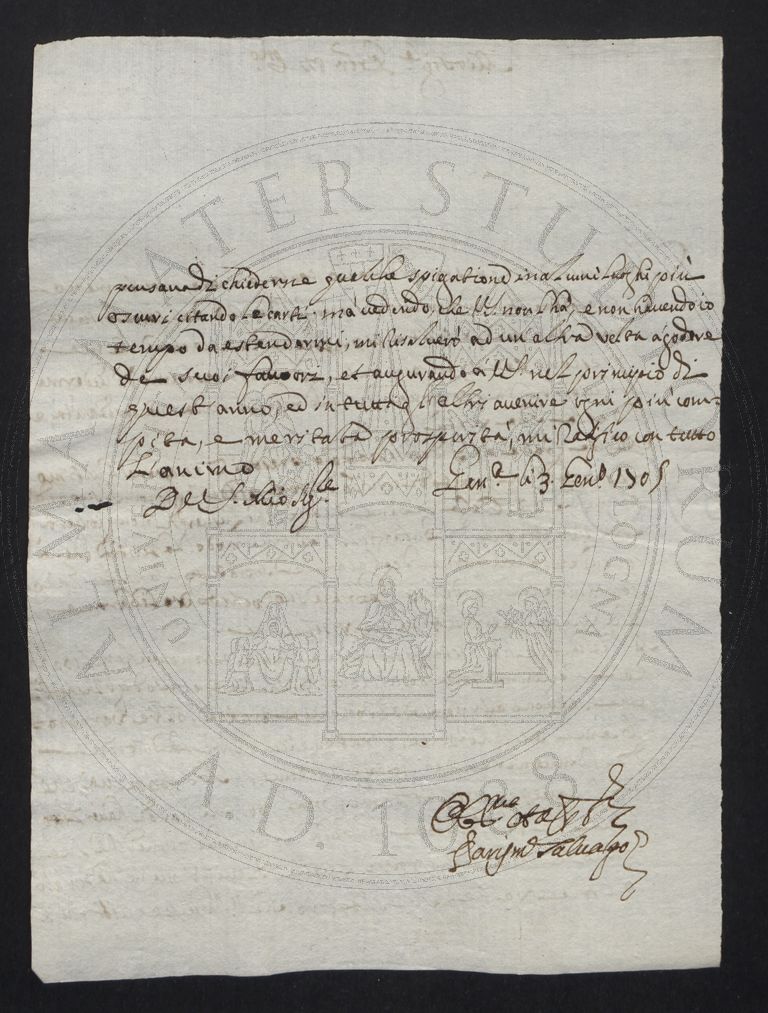 pensava di chiederne qualche spigatione in alcuni luoghi più
oscuri citando le carte, mà vedendo, che V.S. non l'hà, e non havendo io
tempo da estendermi, mi riserverò ad un altra volta à godere
de suoi favori, et augurando à V.S. nel principio di
quest anno, ed in tutti gl'altri avenire ogni più com=
pita, e meritata prosperità, mi ratifico con tutto
L animo
Di V.S. Mio Sig.re
Gen.a li 3. Gen.o 1705
Salvago
ALMA MATER STUDIORUM
UNIVERSITÀ DI BOLOGNA
A.D. 1088